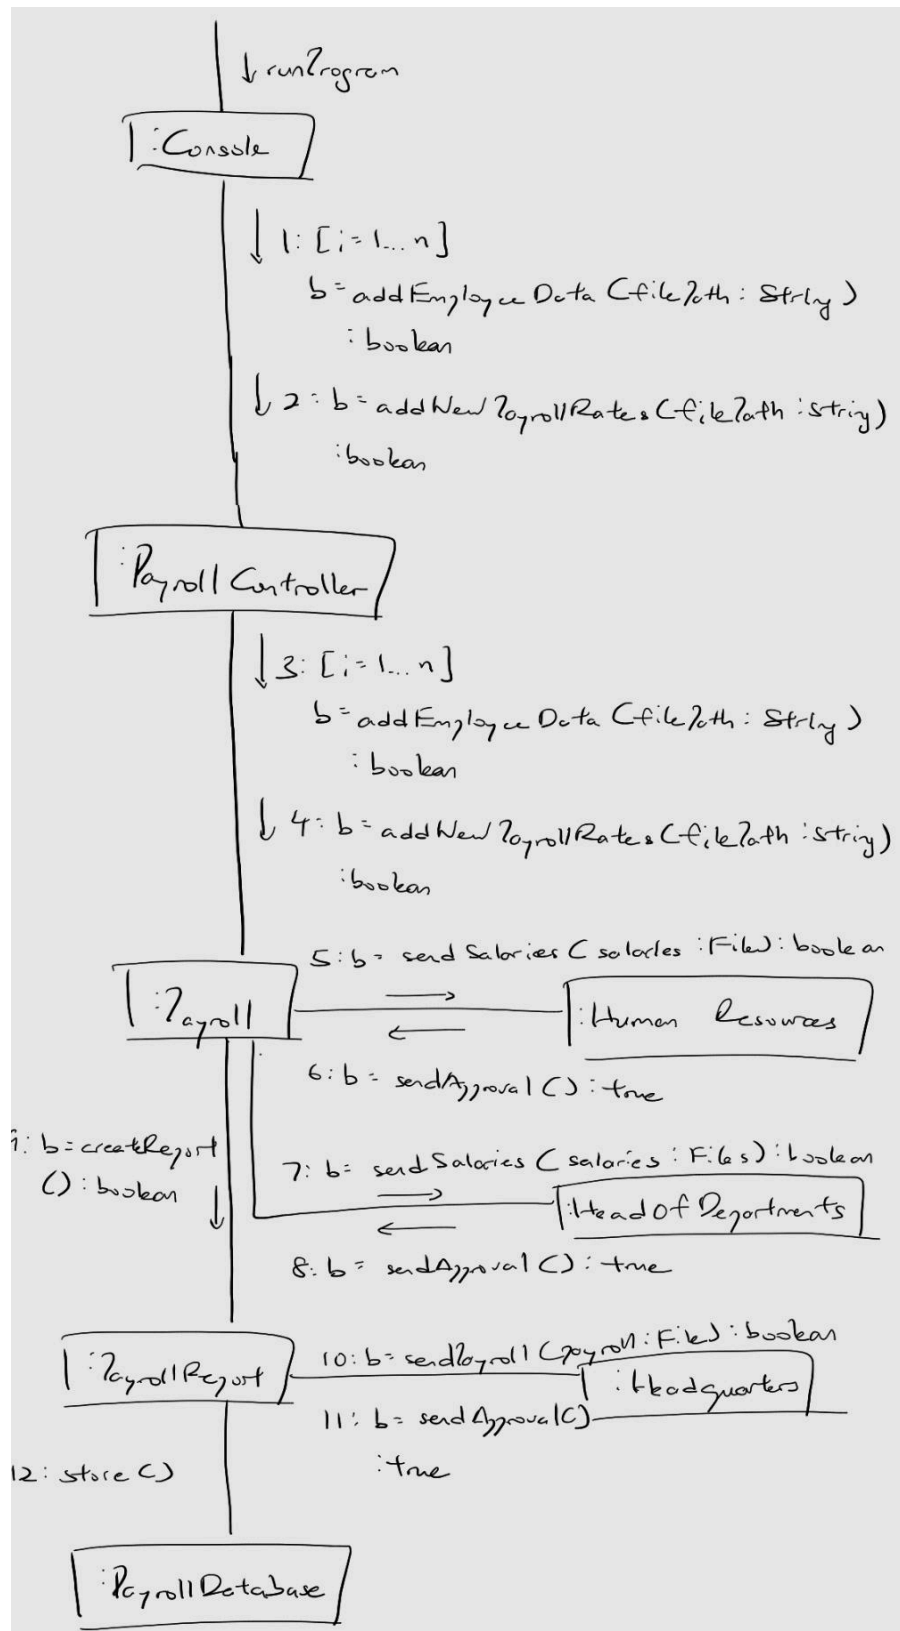 ↓ runProgram
:Console
↓ 1: [i=1...n]
b=addEmployeeData (filePath: String)
:boolean
↓ 2: b=addNewPayrollRates (filePath:string)
:boolean
:Payroll Controller
↓ 3: [i=1...n]
b=addEmployeeData (filePath: String)
:boolean
↓ 4: b=addNewPayrollRates (filePath:string)
:boolean
5: b= sendSalaries (salaries:File): boolean
:Payroll
:Human Resources
6: b= sendApproval(): true
9: b=createReport
(): boolean
7: b= sendSalaries (salaries: Files): boolean
:Head of Departments
8: b= sendApproval(): true
:PayrollReport
10: b=sendPayroll (payroll:File): boolean
:Headquarters
11: b= sendApproval()
:true
12: store()
:PayrollDatabase